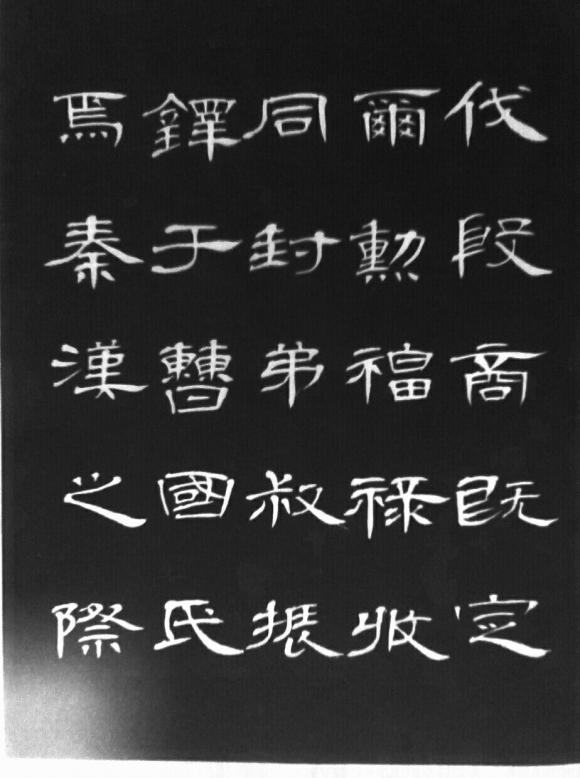 伐殷商既定
爾勳福祿攸
同封弟叔振
鐸于曹國氏
焉秦漢之際